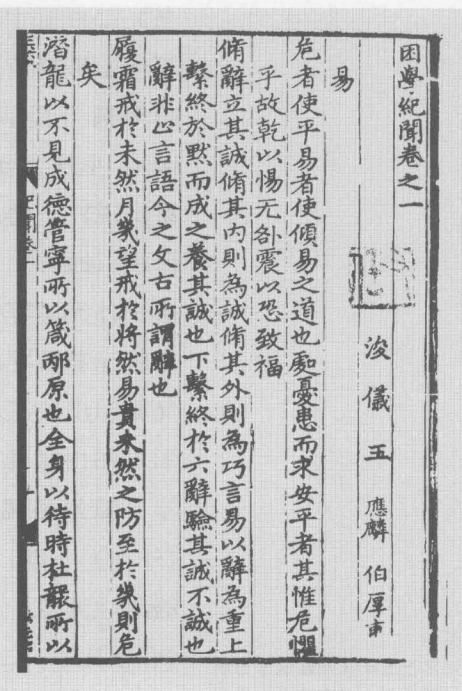 困學紀聞卷之一
浚儀王應麟伯厚甫
易
危者使平易者使傾易之道也處憂患而求安平者其惟危懼
乎故乾以惕无咎震以恐致福
脩辭立其誠脩其內則為誠脩其外則為巧言易以辭為重上
繫終於黙而成之養其誠也下繫終於六辭驗其誠不誠也
辭非止言語今之文古所謂辭也
履霜戒於未然月幾望戒於將然易貴未然之防至於幾則危
矣
潛龍以不見成德管寧所以箴邴原也全身以待時杜襲所以